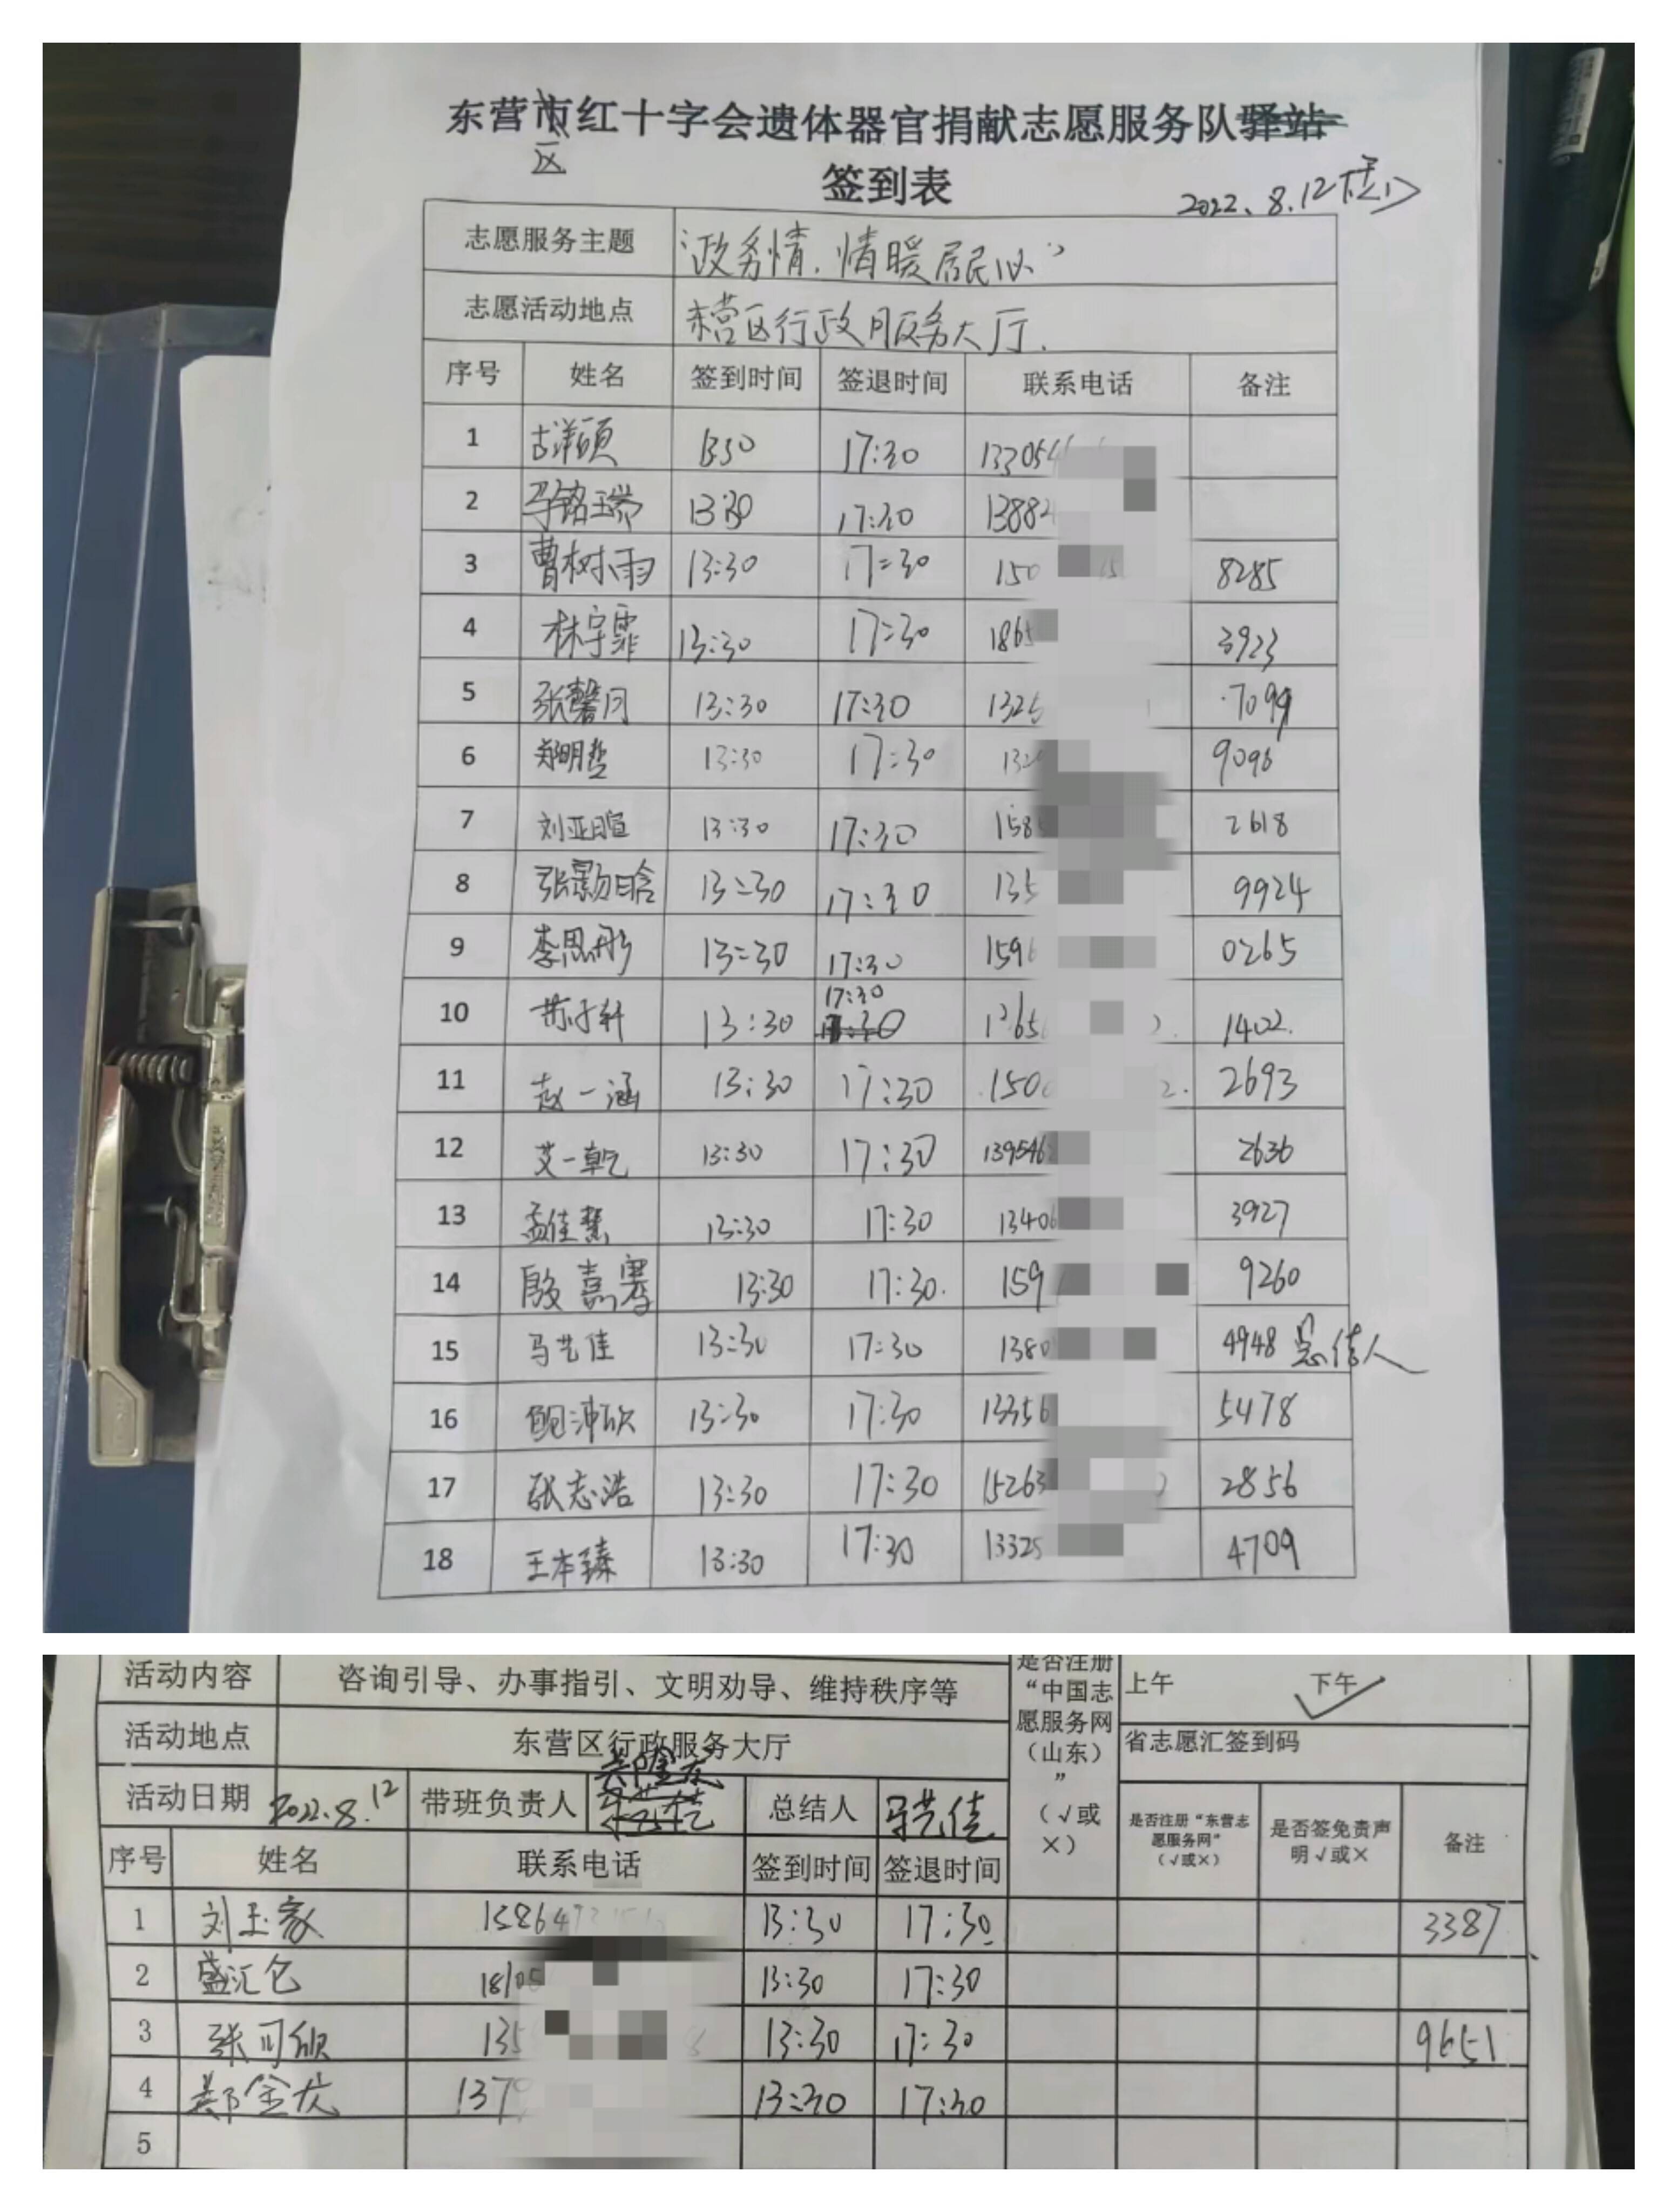 东营市红十字会遗体器官捐献志愿服务队驿站
区
签到表
2022.8.12下午
志愿服务主题 “政务情.情暖居民心”
志愿活动地点 东营区行政服务大厅.
序号 姓名 签到时间 签退时间 联系电话 备注
1 古洋硕 1330 17:30 1330546
2 马铭瑞 13:30 17:30 1388
3 曹树雨 13:30 17:30 150 8285
4 林宇霏 13:30 17:30 1865 3923
5 张馨月 13:30 17:30 1325 7099
6 郑明哲 13:30 17:30 132 9096
7 刘亚暄 13:30 17:30 158 2618
8 张颢晗 13:30 17:30 135 9924
9 李思彤 13:30 17:30 159 0265
17:30
10 苏子轩 13:30 17:30 1402.
11 赵一涵 13:30 17:30 150 2693
12 艾一乾 13:30 17:30 139546 2636
13 孟佳慧 13:30 17:30 1340 3927
14 殷嘉骞 13:30 17:30. 159 9260
15 马艺佳 13:30 17:30 1380 4948 总结人
16 鲍沛欣 13:30 17:30 13356 5478
17 张志浩 13:30 17:30 15263 2856
18 王本臻 13:30 17:30 13325 4709
活动内容 咨询引导、办事指引、文明劝导、维持秩序等
是否注册“中国志愿服务网（山东）”（√或×）
上午 下午√
活动地点 东营区行政服务大厅
省志愿汇签到码
活动日期 2022.8.12 带班负责人 郑金龙 马艺佳 总结人 马艺佳
是否注册“东营志愿服务网”（√或×） 是否签免责声明√或× 备注
序号 姓名 联系电话 签到时间 签退时间
1 刘玉家 158649 13:30 17:30 3387
2 盛汇仑 1810 13:30 17:30
3 张可欣 135 13:30 17:30 9651
4 郑金龙 137 13:30 17:30
5